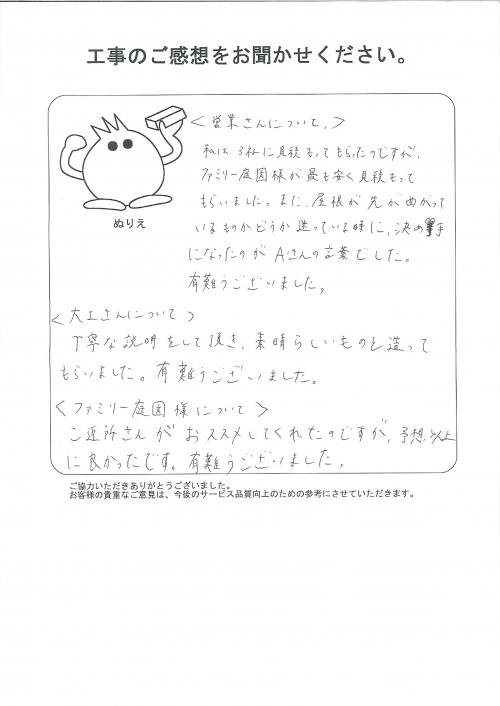 工事のご感想をお聞かせください。
<営業さんについて>
私は3社に見積もってもらったのですが、
ファミリー庭園様が最も安く見積もって
もらいました。また、屋根が先が曲がって
いるものかどうか迷っている時に、決め手
になったのがAさんの言葉でした。
有難うございました。
ぬりえ
<大工さんについて>
丁寧な説明をして頂き、素晴らしいものを造って
もらいました。有難うございました。
<ファミリー庭園様について>
ご近所さんがおススメしてくれたのですが、予想以上
に良かったです。有難うございました。
ご協力いただきありがとうございました。
お客様の貴重なご意見は、今後のサービス品質向上のための参考にさせていただきます。